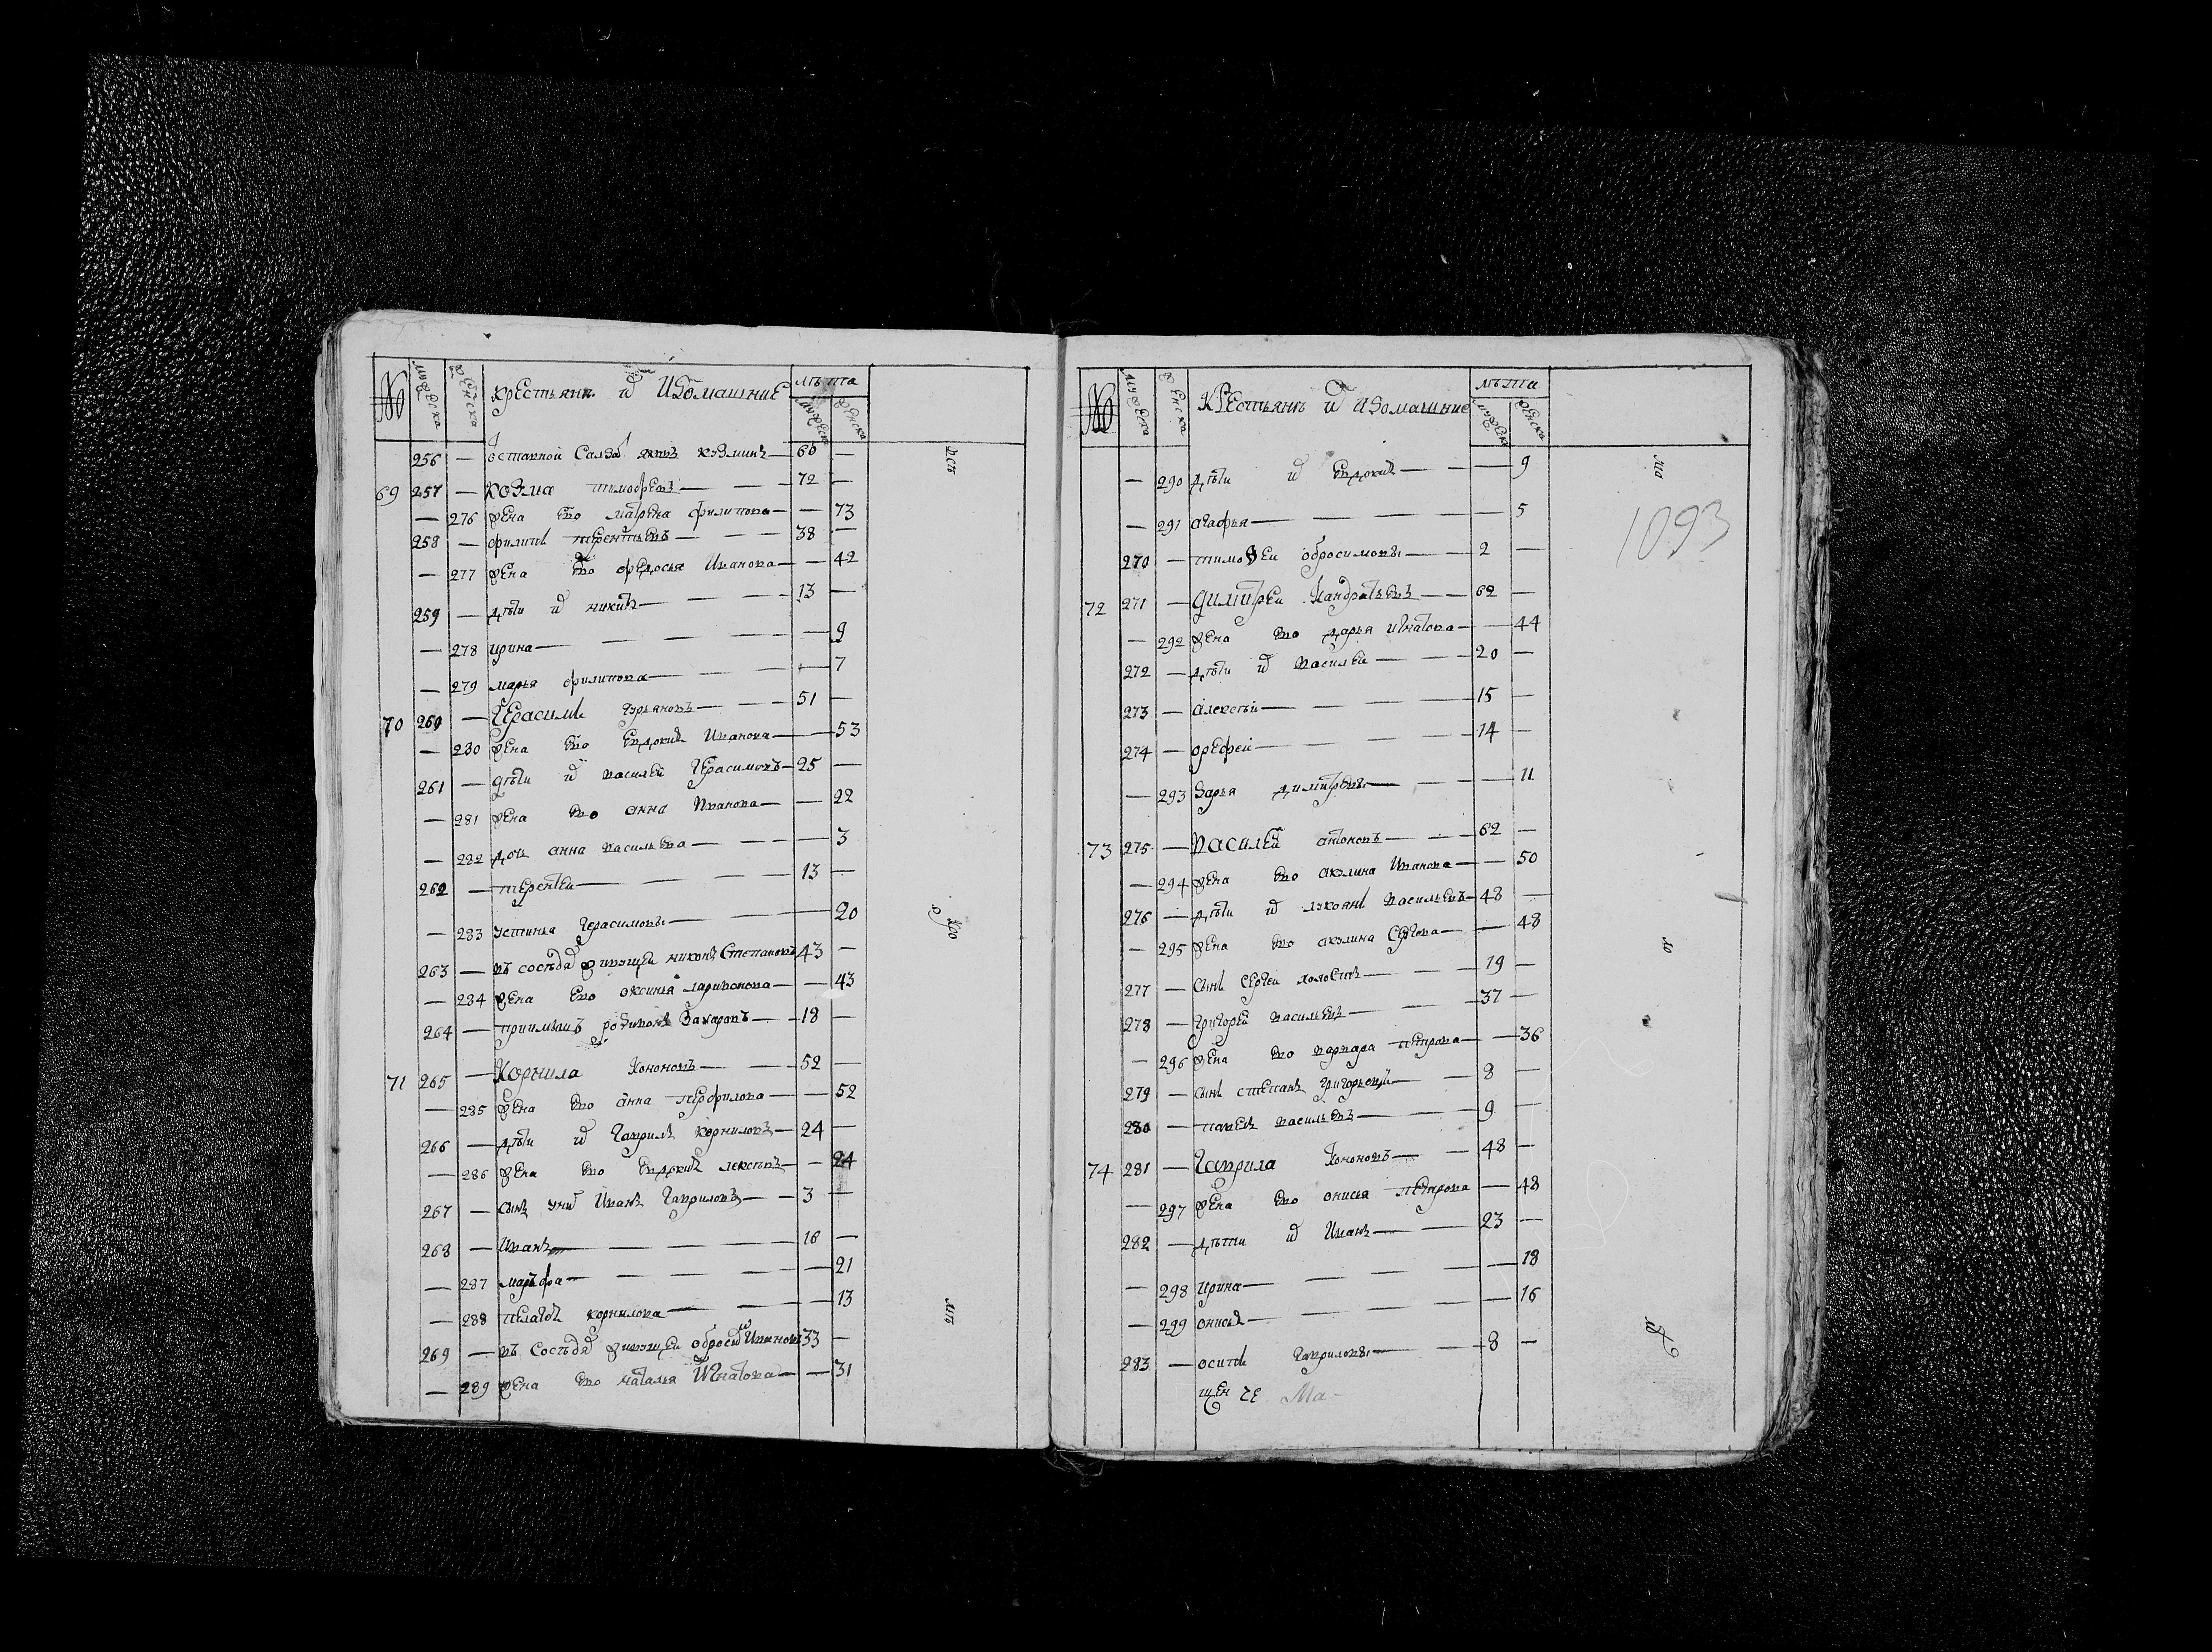 № мужеска женска крестьянѣ и ихъ домашние лѣта мужеска женска
256 — отставной Салдат козминъ — 66 —
69 257 — козма тимофѣевъ — 72 —
— 276 жена ево матрена филипова — — 73
258 — филипъ терентьевъ — 38 —
— 277 жена ево федосья Иванова — — 42
259 — дѣти их никита — 13 —
— 278 ирина — — 9
— 279 марья филипова — — 7
70 260 — Герасимъ гурьяновъ — 51 —
— 280 жена ево Евдокия Иванова — — 53
261 — дѣти их василей Герасимовъ — 25 —
— 281 жена ево анна Иванова — — 22
— 282 дочь анна васильева — — 3
262 — терентей — 13 —
— 283 устинья герасимовы — — 20
263 — въ соседах живущей никонъ Степановъ 43 —
— 284 жена ево оксинья ларивонова — — 43
264 — приимышъ родивонъ Захаровъ — 18 —
71 265 — Корнила Кононовъ — 52 —
— 285 жена ево анна перфилова — — 52
266 — дѣти их Гаврила корниловъ — 24 —
— 286 жена ево Евдокия — — 24
267 — сынъ у них Иванъ Гавриловъ — 3 —
268 — Иванъ — 16 —
— 287 марѣфа — — 21
— 288 пелагея корнилова — — 13
269 — въ Соседах живущей обросимъ Ивановъ 33 —
— 289 жена ево наталья Игнатова — — 31
№ мужеска женска Крестьянъ и их домашние лѣта мужеска женска
— 290 дѣти их Евдокия — — 9
— 291 агафья — — 5
1093
270 — тимоѳей обросимовы — 2 —
72 271 — димитрей Кандратьевъ — 62 —
— 292 жена ево дарья игнатова — — 44
272 — дѣти их василей — 20 —
273 — алексѣй — 15 —
274 — орефей — 14 —
— 293 дарья димитревы — — 11
73 275 — василей антоновъ — 62 —
— 294 жена ево акулина Иванова — — 50
276 — дѣти их лукоянъ васильевъ — 48 —
— 295 жена ево акулина Сергѣева — — 48
277 — сынъ Сергей холостъ — 19 —
278 — григорей васильевъ — 37 —
— 296 жена ево варвара петрова — — 36
279 — сынъ степанъ григорьевъ — 8 —
280 — павелъ васильевъ — 9 —
74 281 — Гаврила Кононовъ — 48 —
— 297 жена ево онисья петрова — 48
282 — дѣти их Иванъ — 23 —
— 298 ирина — — 18
— 299 онисья — — 16
283 — осипъ гавриловы — 8 —